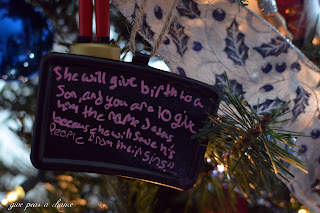 She will give birth to a
Son, and you are to give
him the name Jesus
because he will save his
People from their sins!!
give peas a chance